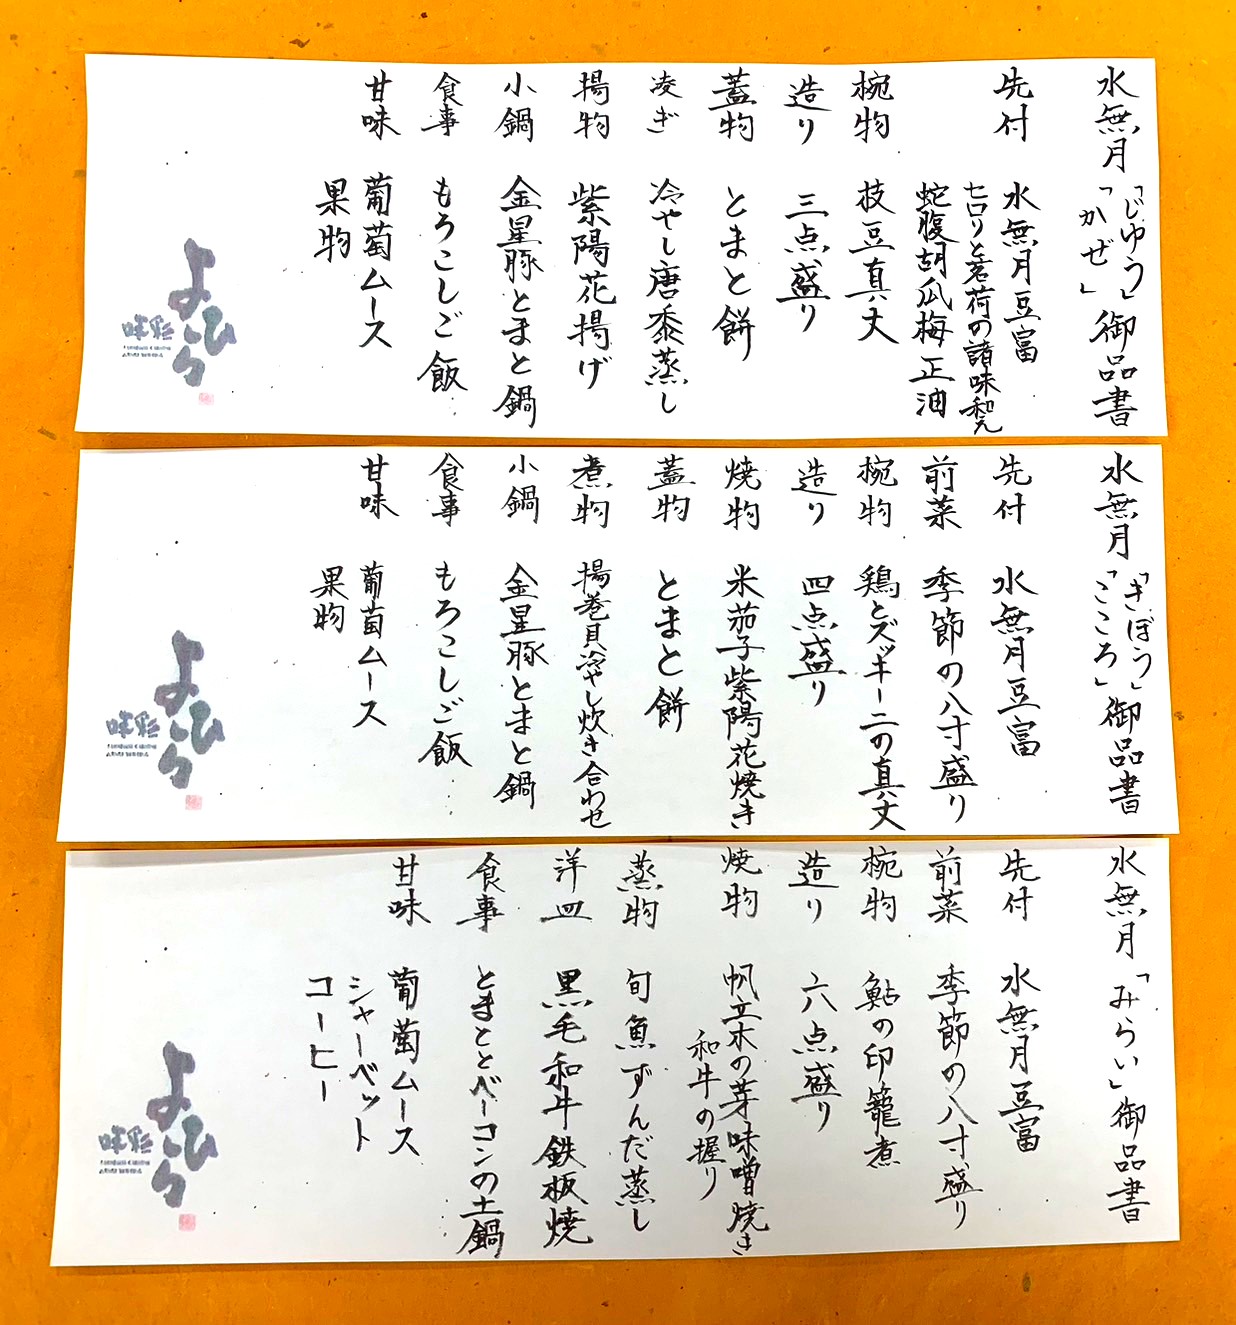 水無月「じゆう」「かぜ」御品書
先付 水無月豆富
セロリと茗荷の諸味和え
蛇腹胡瓜梅正油
椀物 枝豆真丈
造り 三点盛り
蓋物 とまと餅
凌ぎ 冷やし唐黍蒸し
揚物 紫陽花揚げ
小鍋 金星豚とまと鍋
食事 もろこしご飯
甘味 葡萄ムース
果物
よひら
味彩
水無月「きぼう」「こころ」御品書
先付 水無月豆富
前菜 季節の八寸盛り
椀物 鶏とズッキーニの真丈
造り 四点盛り
焼物 米茄子紫陽花焼き
蓋物 とまと餅
煮物 揚巻貝冷やし炊き合わせ
小鍋 金星豚とまと鍋
食事 もろこしご飯
甘味 葡萄ムース
果物
よひら
味彩
水無月「みらい」御品書
先付 水無月豆富
前菜 季節の八寸盛り
椀物 鮎の印籠煮
造り 六点盛り
焼物 帆立木の芽味噌焼き
和牛の握り
蒸物 旬魚ずんだ蒸し
洋皿 黒毛和牛鉄板焼
食事 とまととベーコンの土鍋
甘味 葡萄ムース
シャーベット
コーヒー
よひら
味彩